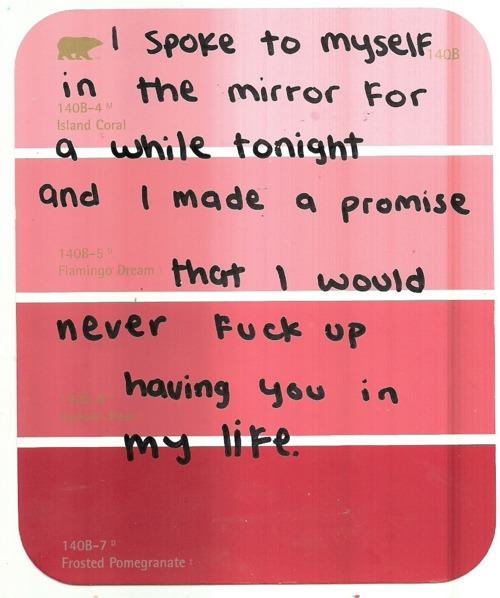 I spoke to myself
140B
in the mirror for
140B-4 M
Island Coral
a while tonight
and I made a promise
140B-5 D
Flamingo Dream
that I would
never fuck up
having you in
my life.
140B-7 D
Frosted Pomegranate